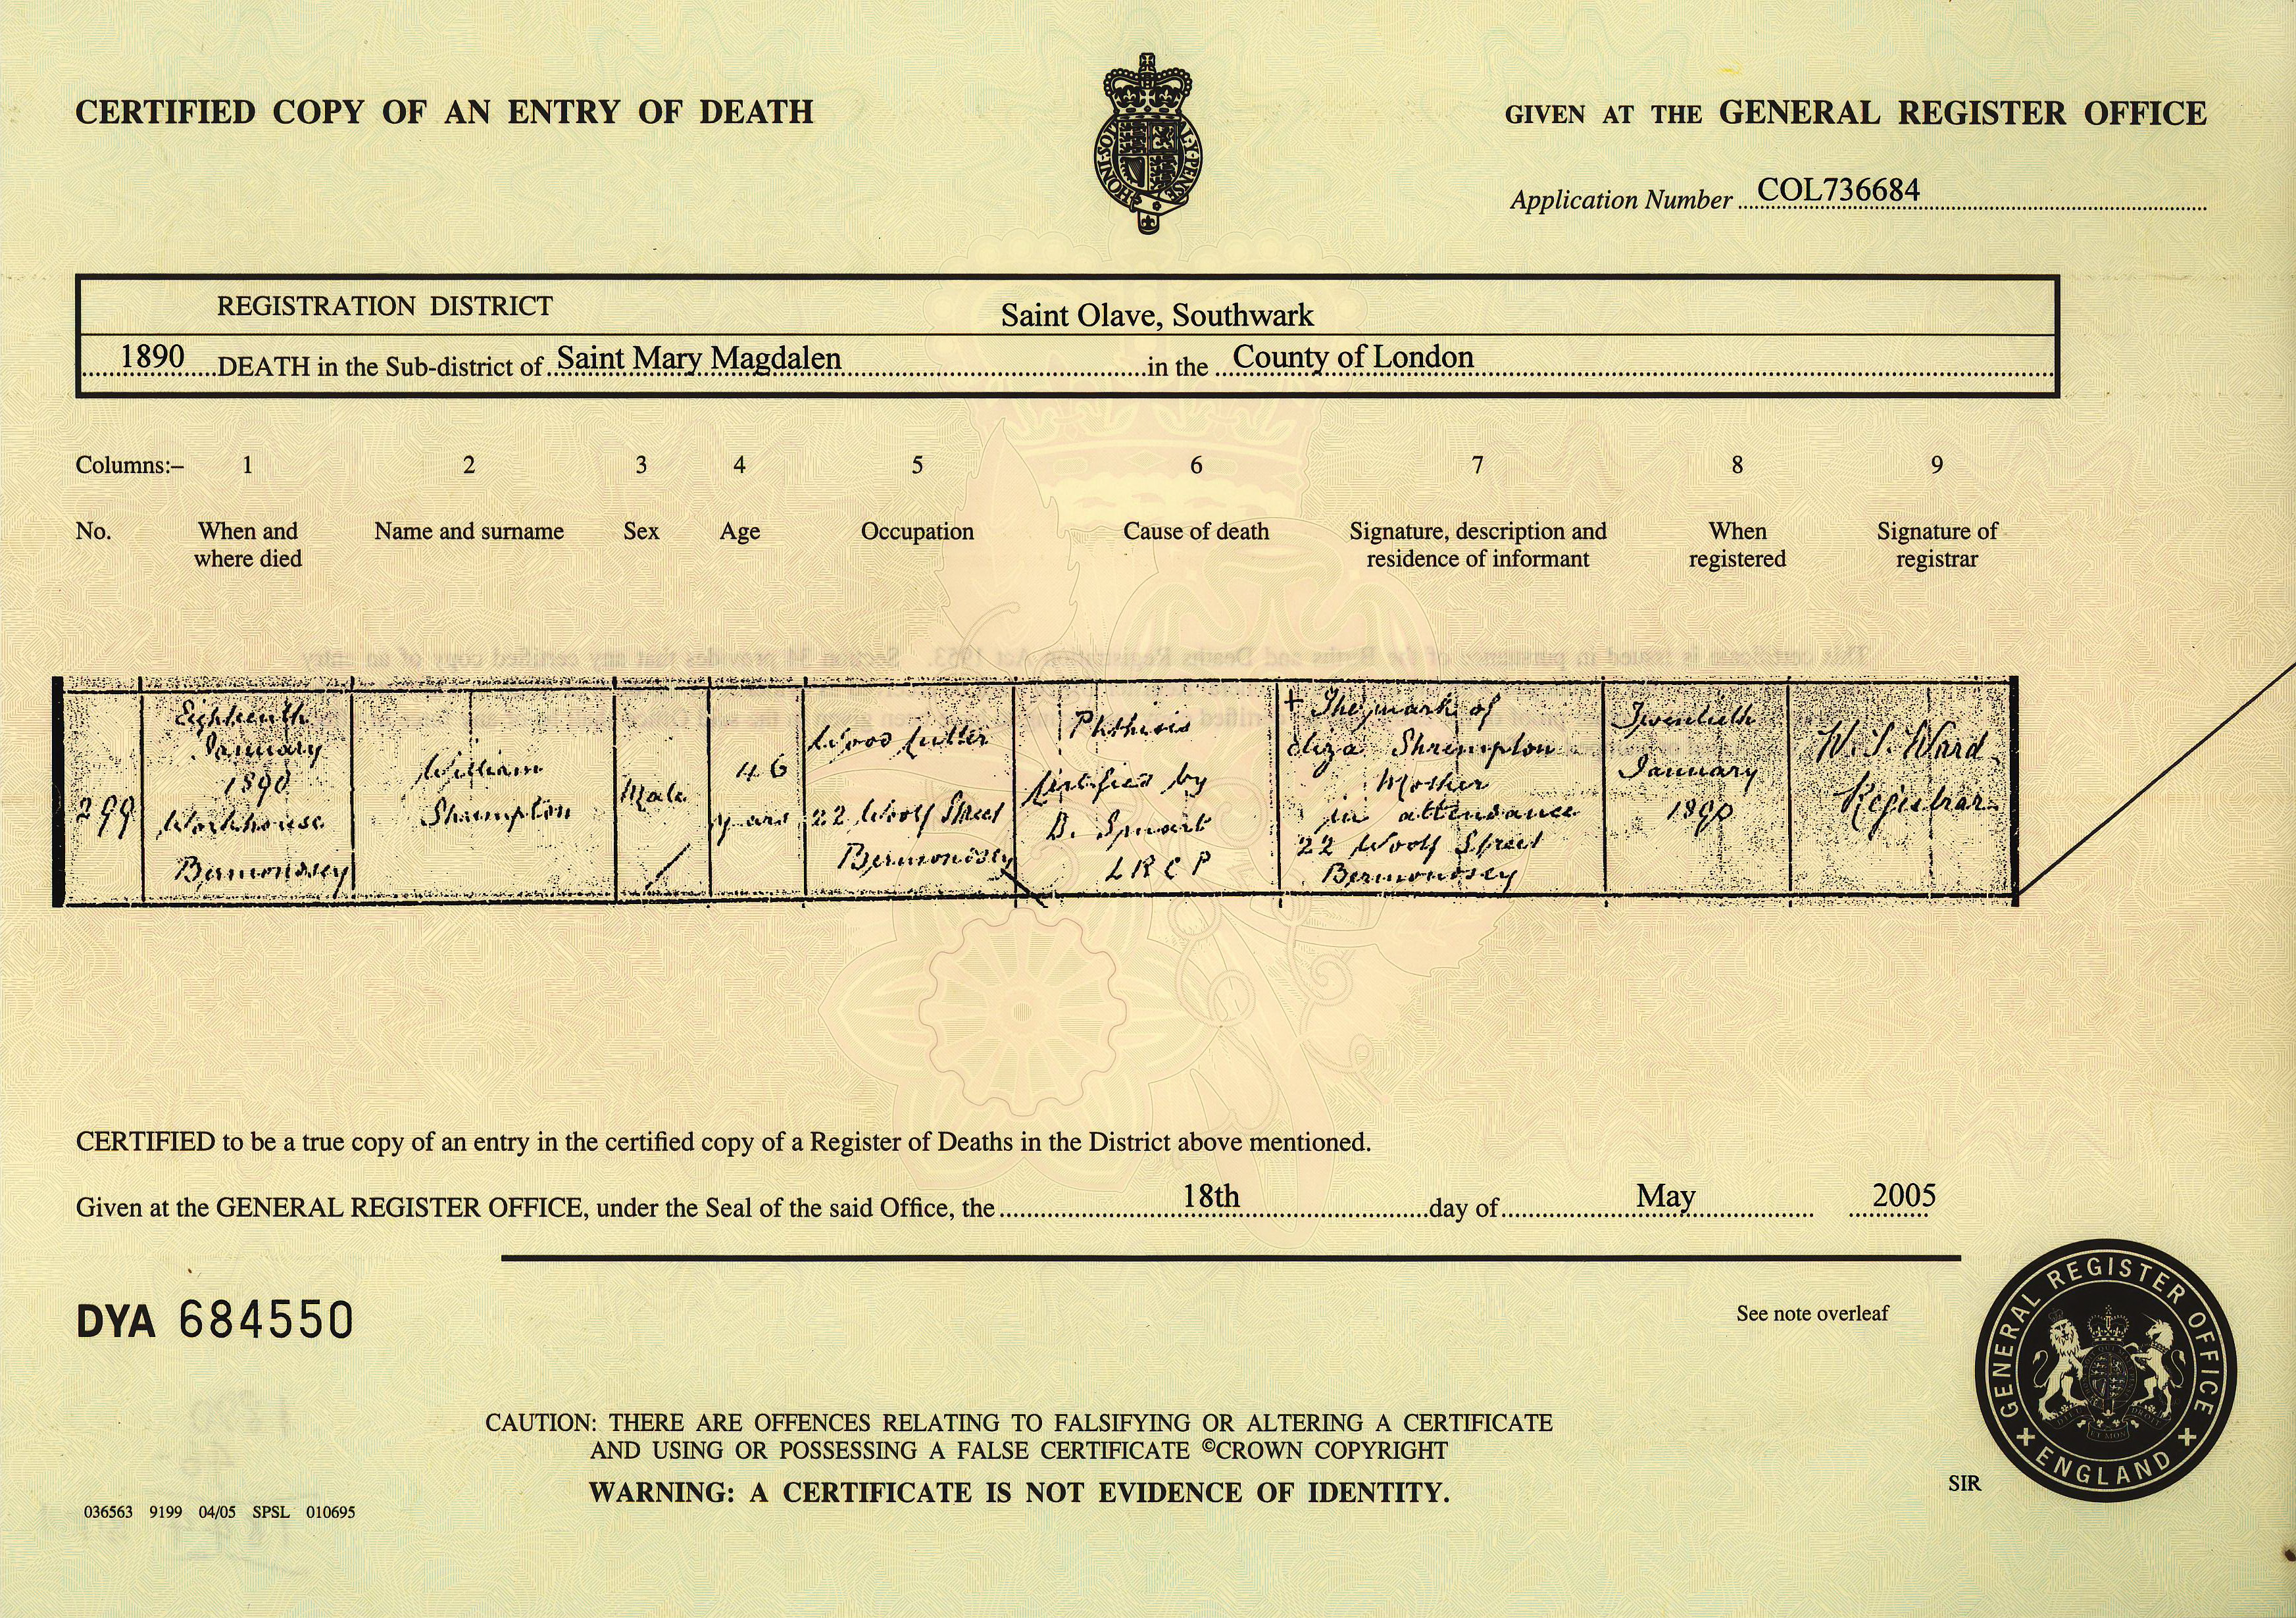 CERTIFIED COPY OF AN ENTRY OF DEATH
GIVEN AT THE GENERAL REGISTER OFFICE
HONI·SOIT
AL·Y·PENSE
Application Number COL736684
REGISTRATION DISTRICT Saint Olave, Southwark
1890 DEATH in the Sub-district of Saint Mary Magdalen in the County of London
Columns:– 1 2 3 4 5 6 7 8 9
No. When and where died Name and surname Sex Age Occupation Cause of death Signature, description and residence of informant When registered Signature of registrar
This certificate is issued in pursuance of the Births and Deaths Registration Act 1953. Section 34 provides that any certified copy of an entry
299
Eighteenth
January
1890
Workhouse
Bermondsey
William
Shrimpton
Male
46
years
Wood Cutter
22 Woolf Street
Bermondsey
Phthisis
Certified by
D. Smart
L R C P
+ The mark of
Eliza Shrimpton
Mother
in attendance
22 Woolf Street
Bermondsey
Twentieth
January
1890
W. S. Ward
Registrar
CERTIFIED to be a true copy of an entry in the certified copy of a Register of Deaths in the District above mentioned.
Given at the GENERAL REGISTER OFFICE, under the Seal of the said Office, the 18th day of May 2005
DYA 684550
See note overleaf
CAUTION: THERE ARE OFFENCES RELATING TO FALSIFYING OR ALTERING A CERTIFICATE
AND USING OR POSSESSING A FALSE CERTIFICATE ©CROWN COPYRIGHT
WARNING: A CERTIFICATE IS NOT EVIDENCE OF IDENTITY.
036563 9199 04/05 SPSL 010695
SIR
GENERAL REGISTER OFFICE
ENGLAND